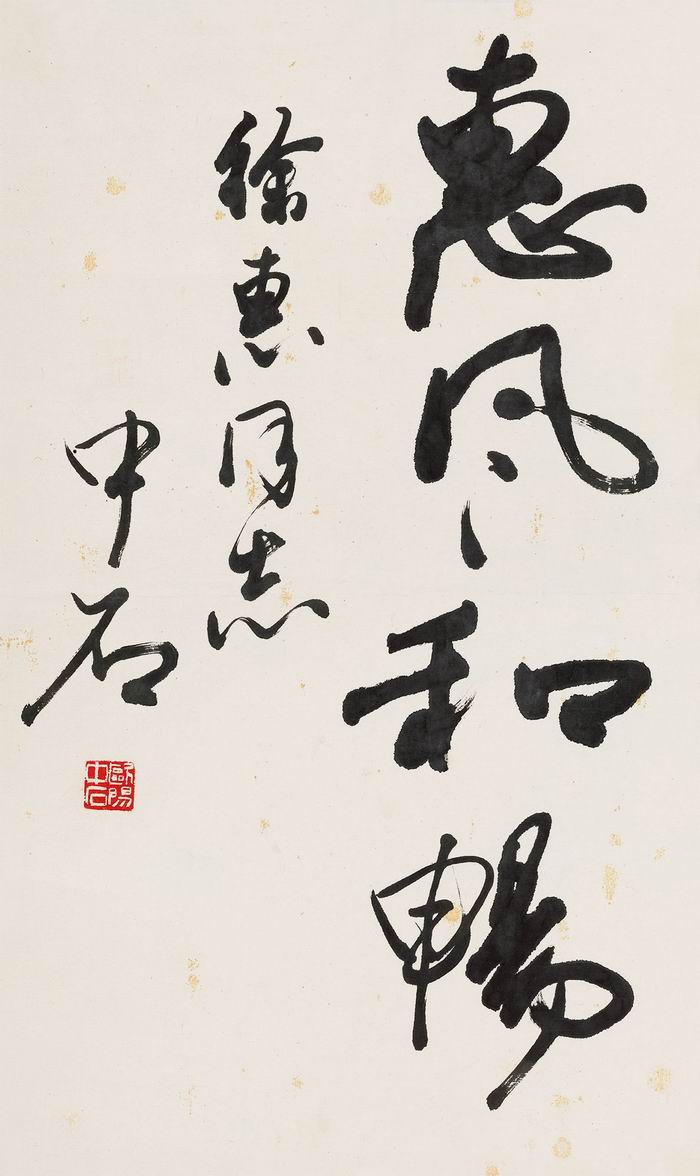 惠风和畅
徐惠同志
中石
歐陽中石